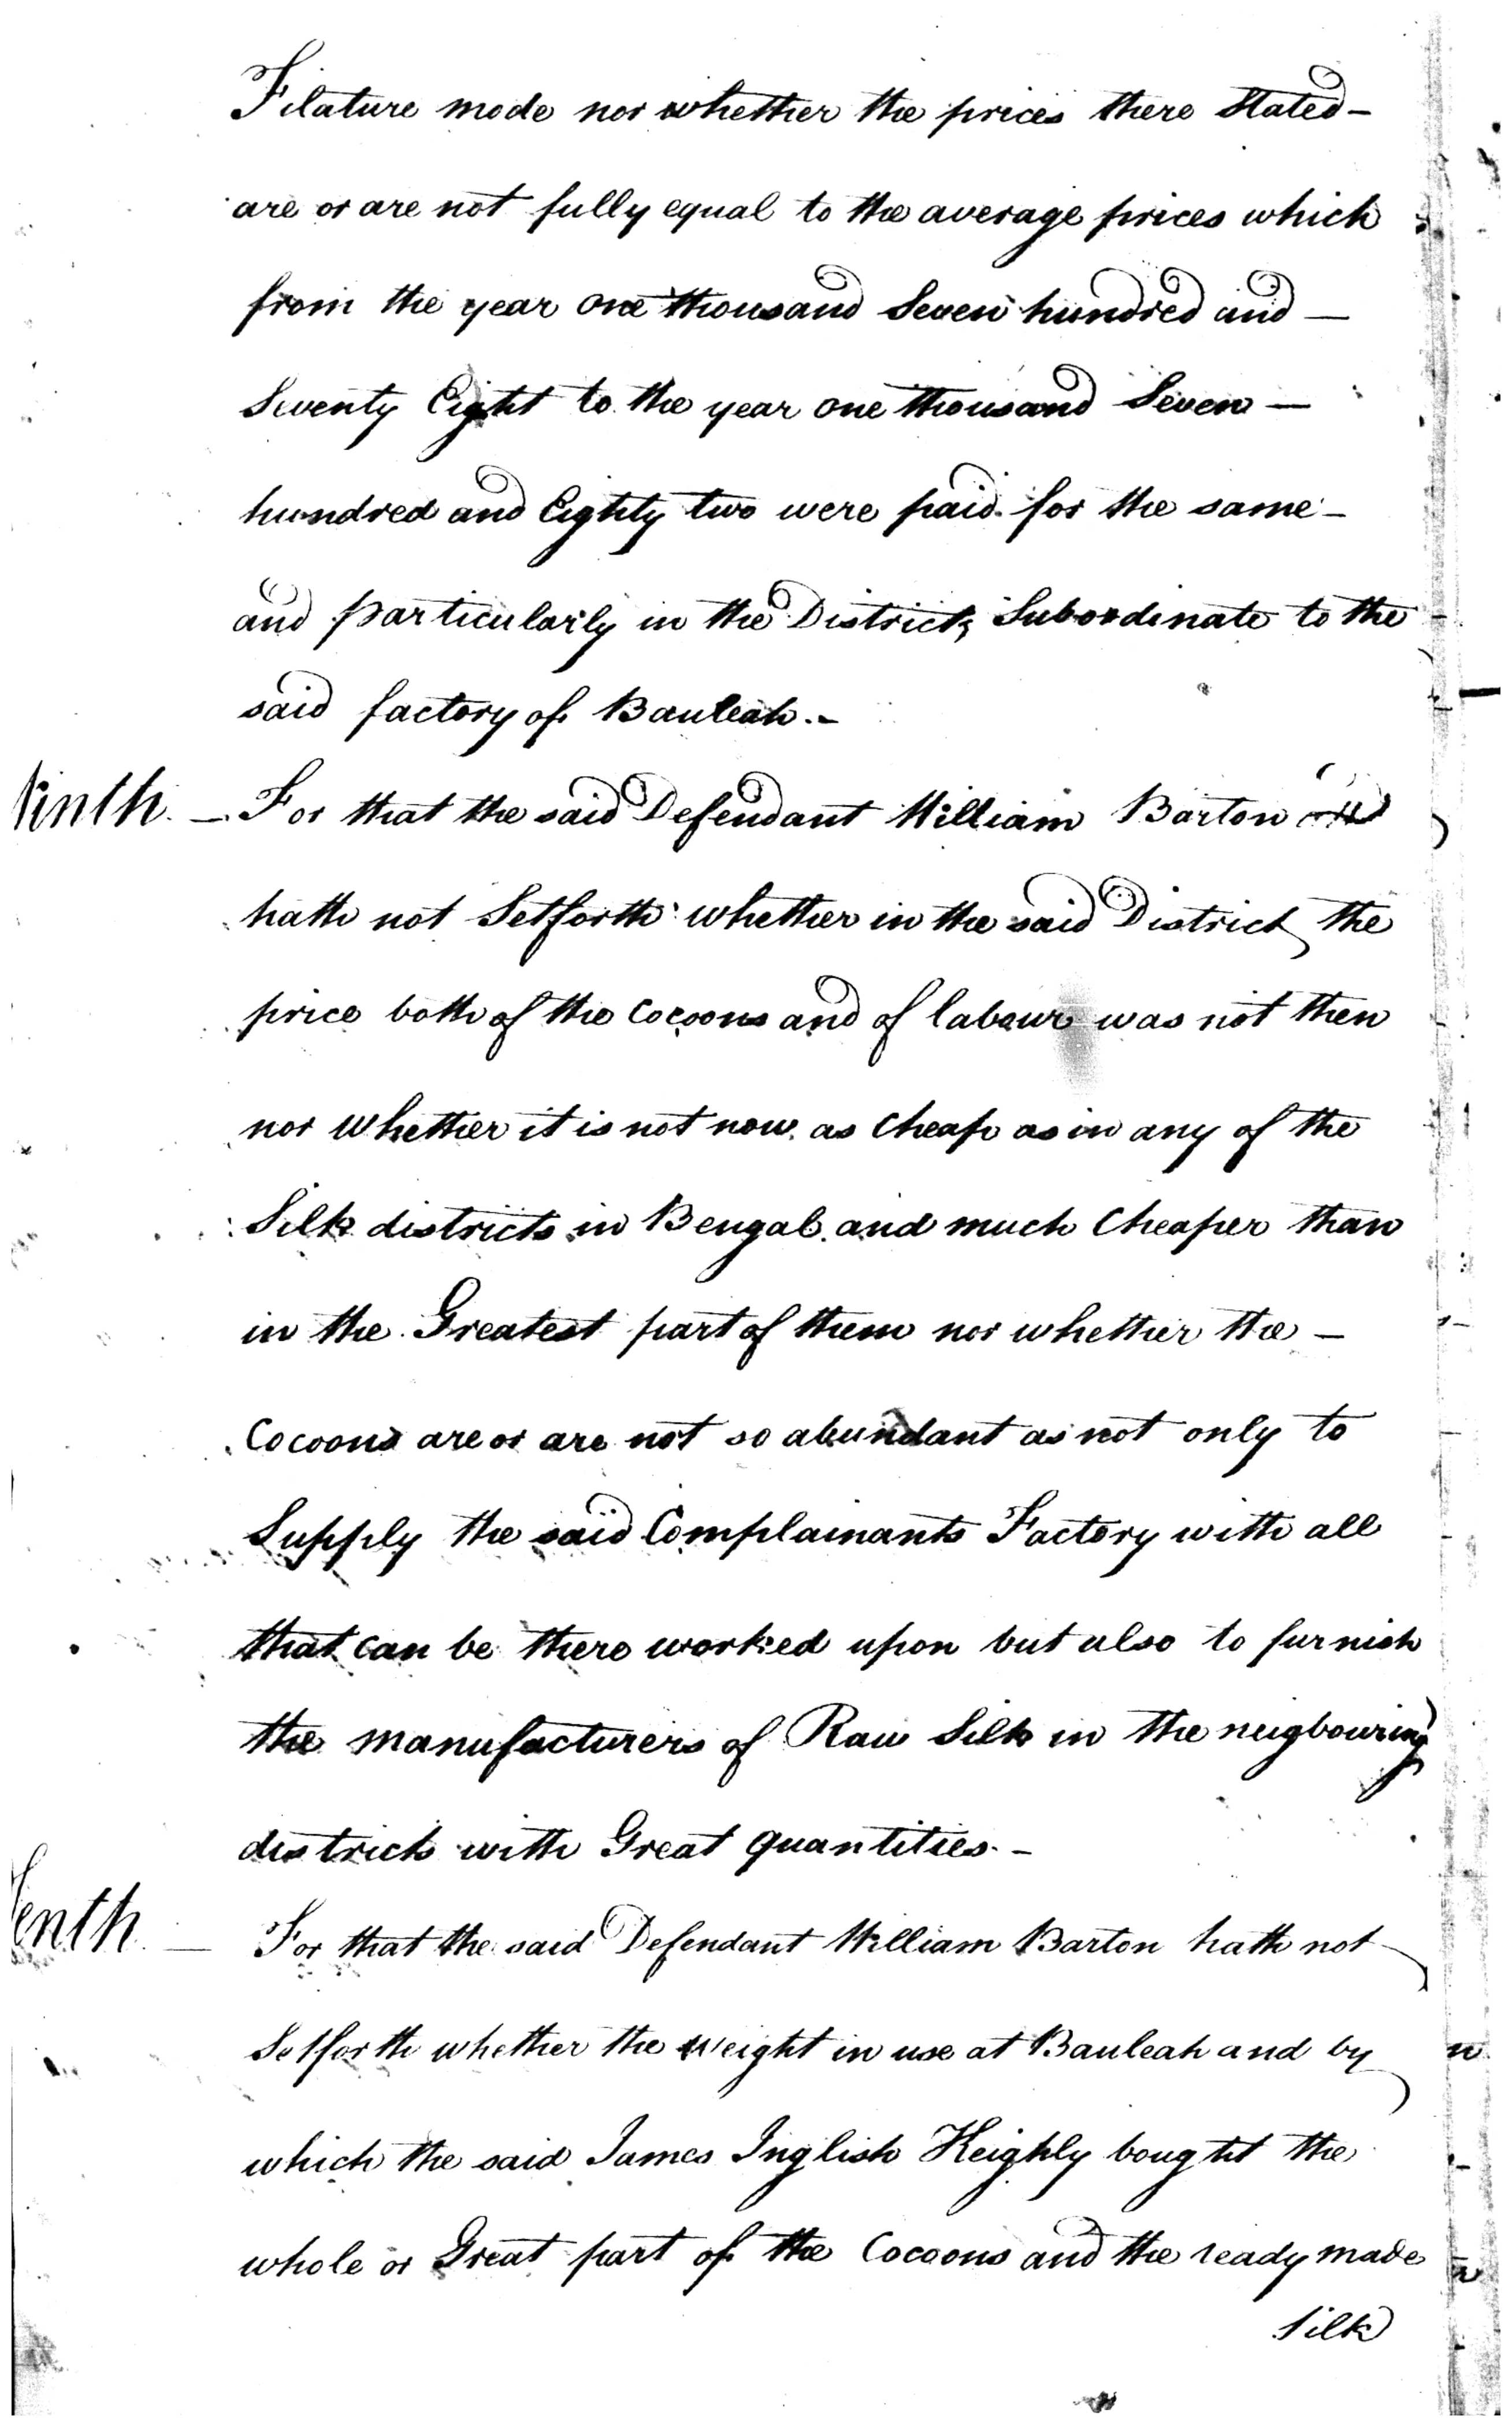 Filature mode nor whether the prices there Stated –
are or are not fully equal to the average prices which
from the year one thousand Seven hundred and –
Seventy Eight to the year one thousand Seven –
hundred and Eighty two were paid for the same –
and particularly in the Districts Subordinate to the
said factory of Bauleah. –
Ninth. – For that the said Defendant William Barton
hath not Setforth whether in the said District the
price both of the Cocoons and of labour was not then
nor whether it is not now as Cheap as in any of the
Silk districts in Bengal and much Cheaper than
in the Greatest part of them nor whether the –
Cocoons are or are not so abundant as not only to
Supply the said Complainants Factory with all
that can be there worked upon but also to furnish
the manufacturers of Raw Silk in the neigbouring
districts with Great quantities. –
Tenth – For that the said Defendant William Barton hath not
Setforth whether the Weight in use at Bauleah and by
which the said James Inglish Keighly bought the
whole or Great part of the Cocoons and the ready made
Silk